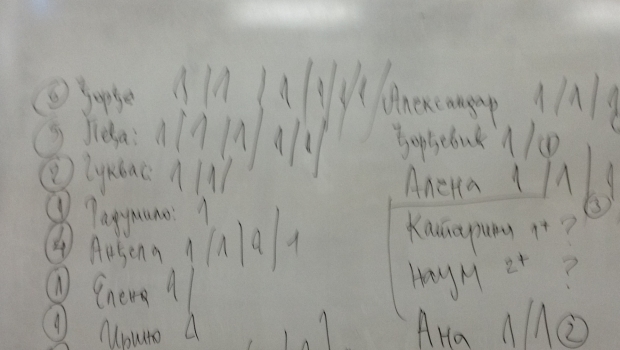 6 Ђорђе 1/1/1/1/1/1/
5 Пеђа: 1/1/1/1/1/
2 Лукас: 1/1/
1 Радумило: 1
4 Анђела 1/1/1/1
1 Елена 1/
1 Ирина 1
Александар 1/1/1
Ђорђевић 1/①
Алена 1/1/1 ③
Катарина 1+ ?
Наум 2+ ?
Ана 1/1②